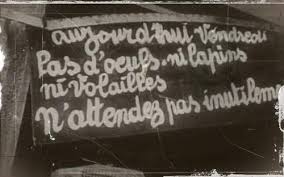 aujourd'hui Vendredi
Pas d'oeufs. ni lapins
ni volailles
n'attendez pas inutilem